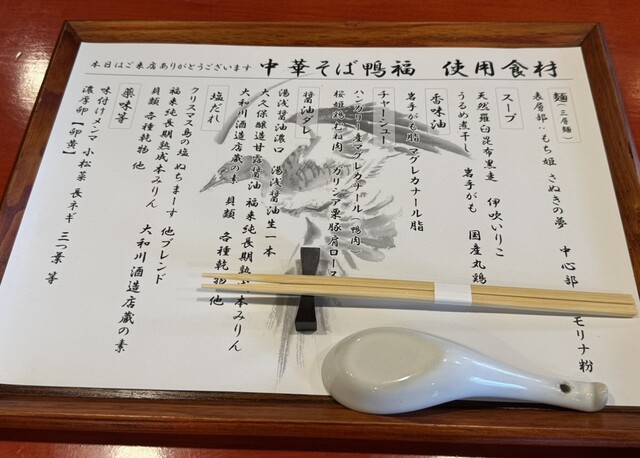 本日はご来店ありがとうございます 中華そば鴨福 使用食材
麺(三層麺)
表層部:もち姫 さぬきの夢 中心部
モリナ粉
スープ
天然羅臼昆布黒走 伊吹いりこ
うるめ煮干し 岩手がも 国産丸鶏
香味油
岩手がも脂 マグレカナール脂
チャーシュー
ハンガリー産マグレカナール(鴨肉)
桜姫鶏むね肉 ガリシア栗豚肩ロース
醤油ダレ
湯浅醤油濃口 湯浅醤油生一本
大久保醸造甘露醤油 福来純長期熟 本みりん
大和川酒造店蔵の素 貝類 各種乾物 他
塩だれ
クリスマス島の塩 ぬちまーす 他ブレンド
福来純長期熟成本みりん 大和川酒造店蔵の素
貝類 各種乾物 他
薬味等
味付けメンマ 小松菜 長ネギ 三つ葉 等
濃厚卵【卵黄】